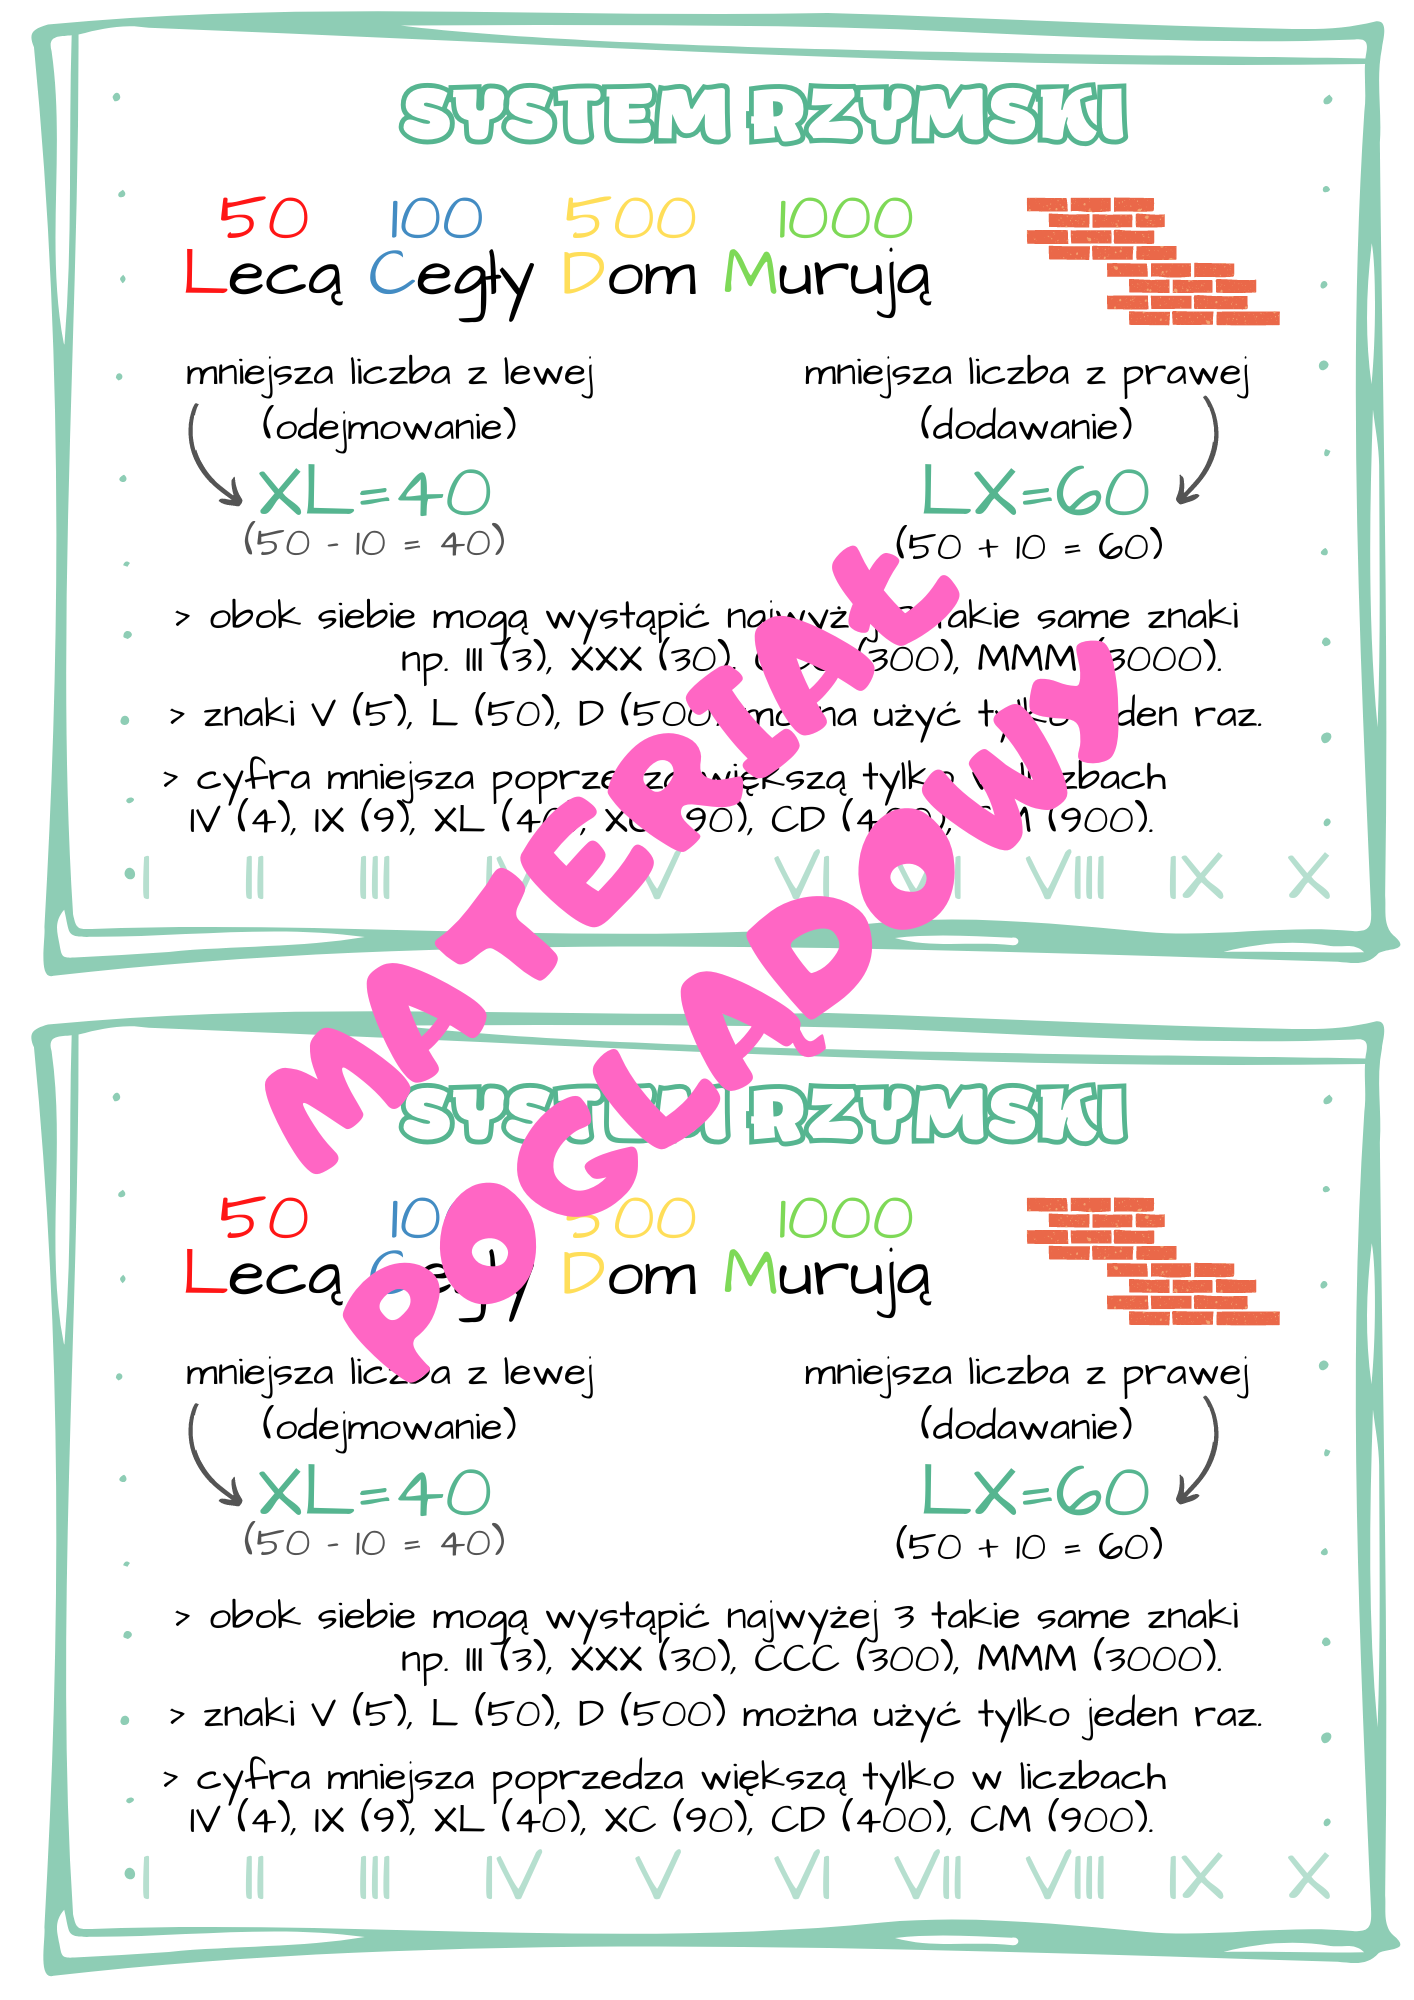 SYSTEM RZYMSKI
50 100 500 1000
Lecą Cegły Dom Murują
mniejsza liczba z lewej
(odejmowanie)
XL=40
(50 - 10 = 40)
mniejsza liczba z prawej
(dodawanie)
LX=60
(50 + 10 = 60)
> obok siebie mogą wystąpić najwyżej 3 takie same znaki
np. III (3), XXX (30), CCC (300), MMM (3000).
> znaki V (5), L (50), D (500) można użyć tylko jeden raz.
> cyfra mniejsza poprzedza większą tylko w liczbach
IV (4), IX (9), XL (40), XC (90), CD (400), CM (900).
I II III IV V VI VII VIII IX X
MATERIAŁ
POGLĄDOWY
SYSTEM RZYMSKI
50 100 500 1000
Lecą Cegły Dom Murują
mniejsza liczba z lewej
(odejmowanie)
XL=40
(50 - 10 = 40)
mniejsza liczba z prawej
(dodawanie)
LX=60
(50 + 10 = 60)
> obok siebie mogą wystąpić najwyżej 3 takie same znaki
np. III (3), XXX (30), CCC (300), MMM (3000).
> znaki V (5), L (50), D (500) można użyć tylko jeden raz.
> cyfra mniejsza poprzedza większą tylko w liczbach
IV (4), IX (9), XL (40), XC (90), CD (400), CM (900).
I II III IV V VI VII VIII IX X